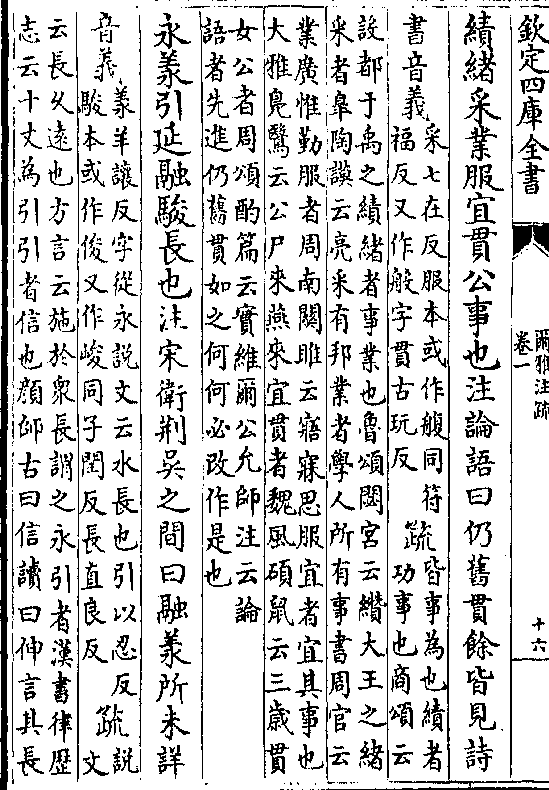 欽定四庫全書
爾雅注疏
卷一
十六
績緒采業服宜貫公事也注論語曰仍舊貫餘皆見詩
書音義采七在反服本或作䑧同符
福反又作般字貫古玩反疏皆事為也績者
功事也商頌云
設都于禹之績緒者事業也魯頌閟宮云纘大王之緒
采者皋陶謨云亮采有邦業者學人所有事書周官云
業廣惟勤服者周南關雎云寤寐思服宜者宜其事也
大雅鳧鷖云公尸來燕來宜貫者魏風碩鼠云三歲貫
女公者周頌酌篇云實維爾公允師注云論
語者先進仍舊貫如之何何必改作是也
永羕引延融駿長也注宋衛荆吳之間曰融羕所未詳
音義羕羊讓反字從永說文云水長也引以忍反
駿本或作俊又作峻同子閏反長直良反疏說
文
云長久遠也方言云施於衆長謂之永引者漢書律歷
志云十丈為引引者信也顔師古曰信讀曰伸言其長